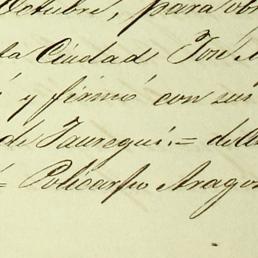 Octubre, para
la Ciudad José
y firmó con sus
de Jauregui = 
= Policarpo Arago